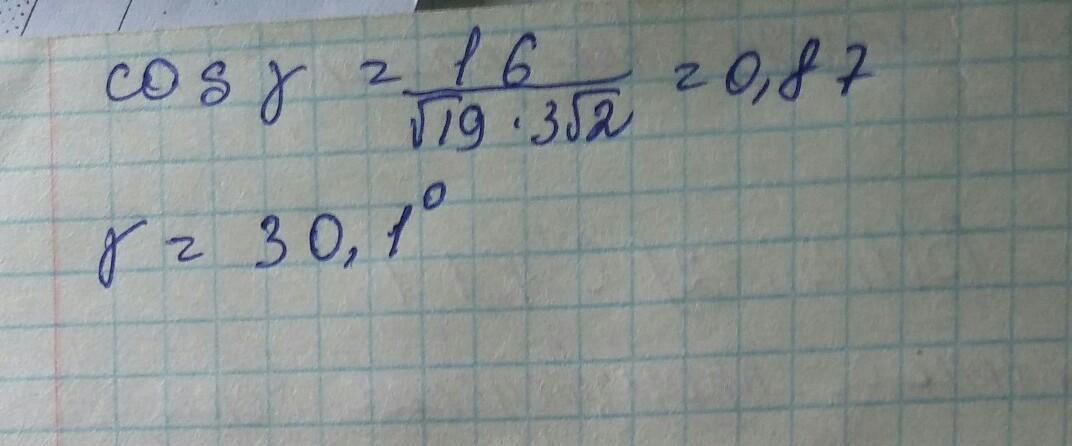 cos γ = 16 / √19 · 3√2 = 0,87
γ = 30,1°